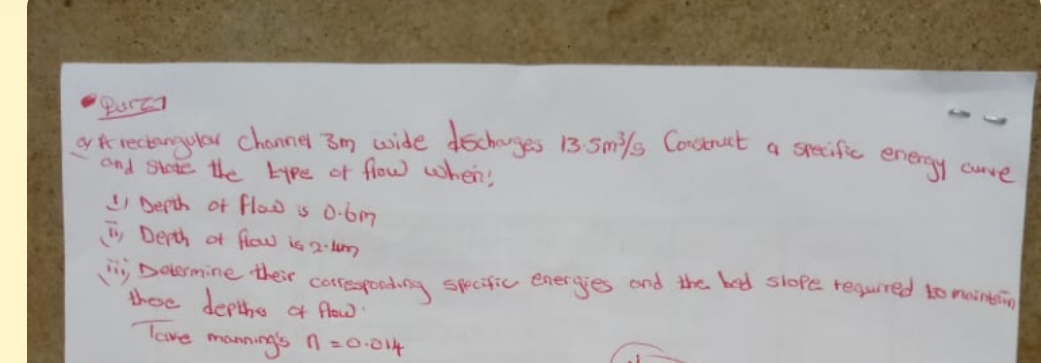 Quiz 1
a) A rectangular channel 3m wide discharges 13.5m³/s Construct a specific energy curve
and state the type of flow when;
i) Depth of flow is 0.6m
ii) Depth of flow is 2.4m
iii) Determine their corresponding specific energies and the bed slope required to maintain
these depths of flow.
Take manning's n = 0.014